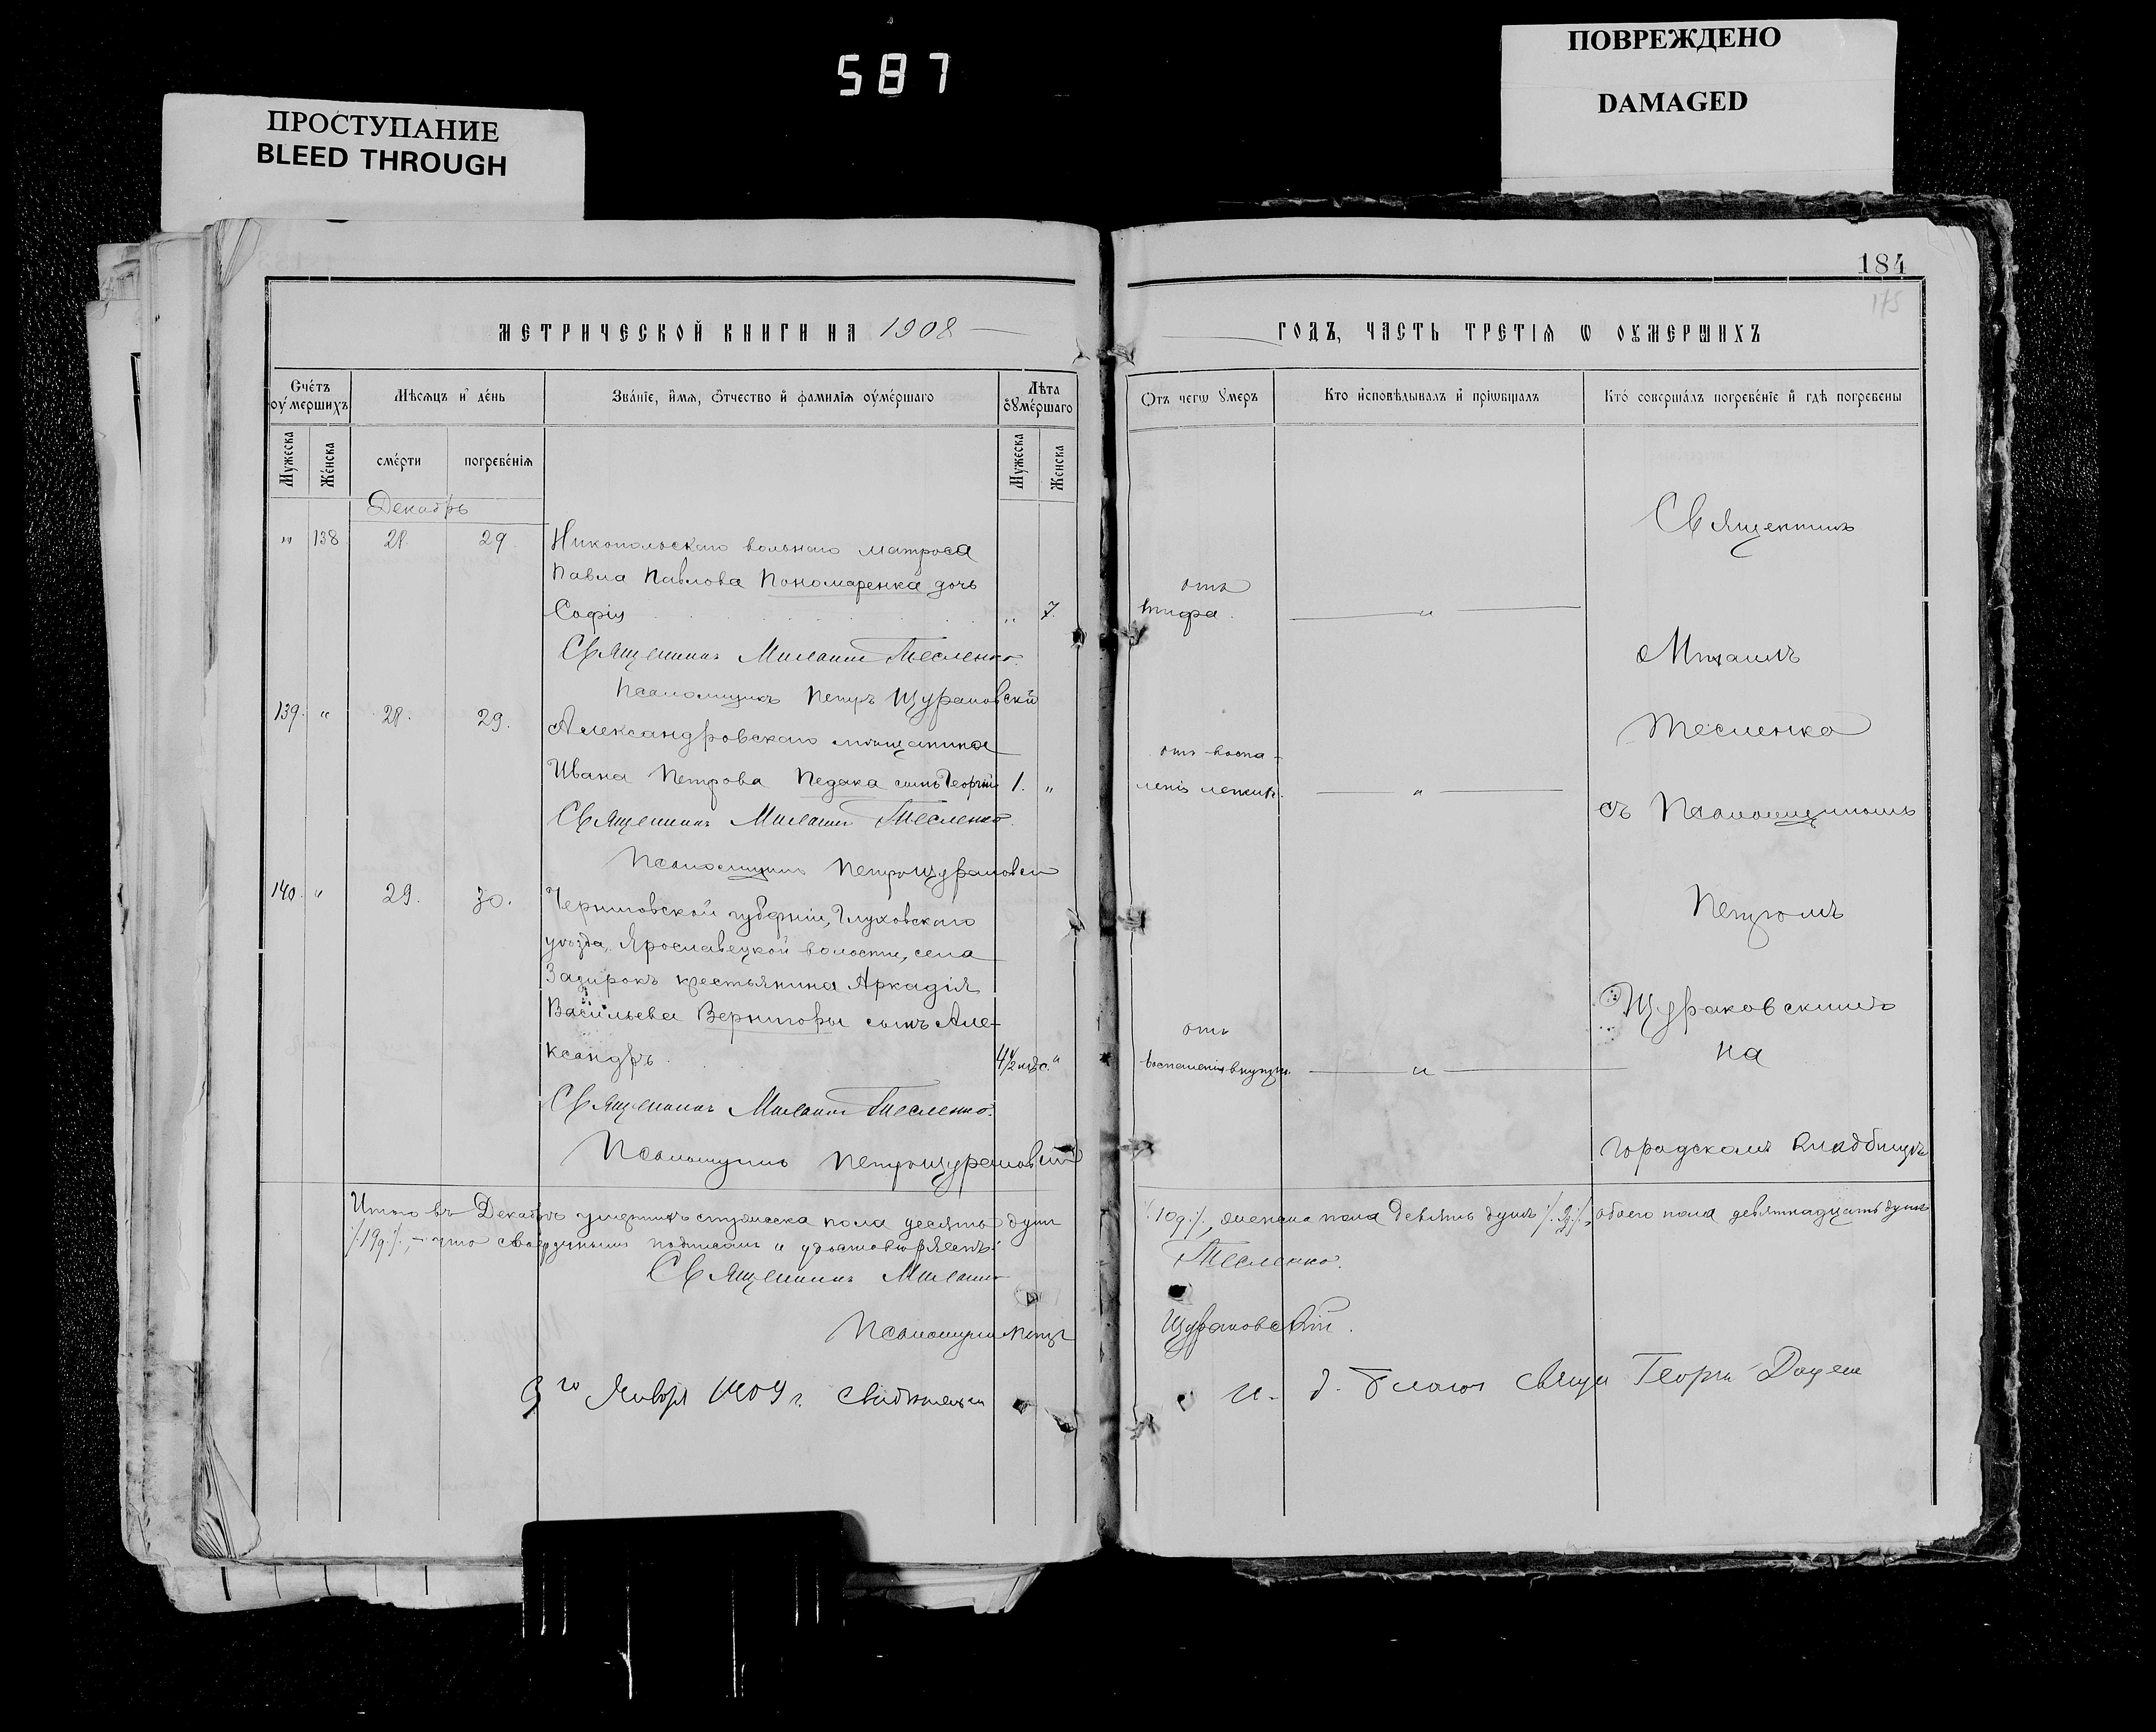 587
ПРОСТУПАНИЕ
BLEED THROUGH
ПОВРЕЖДЕНО
DAMAGED
184
175
МЕТРИЧЕСКОЙ КНИГИ НА 1908
ГОДЪ, ЧАСТЬ ТРЕТІЯ Ѡ ОУМЕРШИХЪ
Счетъ оумершихъ
Мѣсяцъ и день
Званіе, имя, отчество и фамилія оумершаго
Лѣта оумершаго
Отъ чегѡ умеръ
Кто исповѣдывалъ и пріѡбщалъ
Кто совершалъ погребеніе и гдѣ погребены
Мужеска
Женска
смерти
погребенія
Мужеска
Женска
Декабрь
" 138 28. 29 Никопольскаго вольнаго матроса
Павла Павлова Пономаренка дочь
Софія " 7.
отъ
тифа.
Священникъ Михаилъ Тесленко.
Псаломщикъ Петръ Щураковскій
139. " 28. 29. Александровскаго мѣщанина
Ивана Петрова Педака сынъ Георгій 1. "
отъ воспа-
ленія легкихъ.
Священникъ Михаилъ Тесленко.
Псаломщикъ Петръ Щураковскій
140. " 29. 30. Черниговской губерніи, Глуховскаго
уѣзда, Ярославецкой волости, села
Задирокъ крестьянина Аркадія
Васильева Вернигоры сынъ Але-
ксандръ. 4 1/2 мѣс. "
отъ
воспаленія
Священникъ Михаилъ Тесленко.
Псаломщикъ Петръ Щураковскій
Священникъ
Михаилъ
Тесленко
съ Псаломщикомъ
Петромъ
Щураковскимъ
на
городскомъ кладбищѣ
Итого въ Декабрѣ умершихъ мужеска пола десять душъ /.10д./, женска пола девять душъ /.9д./, обоего пола девятнадцать душъ
/.19д./, – что своеручнымъ подписомъ и удостовѣряемъ:
Священникъ Михаилъ Тесленко.
Псаломщикъ Петръ Щураковскій.
9го Января 1909 г. и. д. Георгій